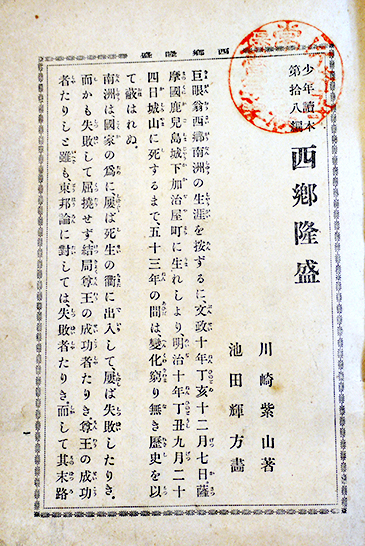 西鄕隆盛
少年讀本
第拾八編
西鄕隆盛
川崎紫山著
池田輝方畵
巨眼翁西鄕南洲の生涯を按ずるに、文政十年丁亥十二月七日、薩
摩國鹿兒島城下加治屋町に生れしより、明治十年丁丑九月二十
四日城山に死するまで、五十三年の間は、變化窮り無き歷史を以
て蔽はれぬ。
南洲は國家の爲に屢ば死生の衢に出入して屢ば失敗したりき。
而かも失敗して屈撓せず、結局尊王の成功者たりき、尊王の成功
者たりしと雖も、東邦論に對しては、失敗者たりき。而して其末路
一